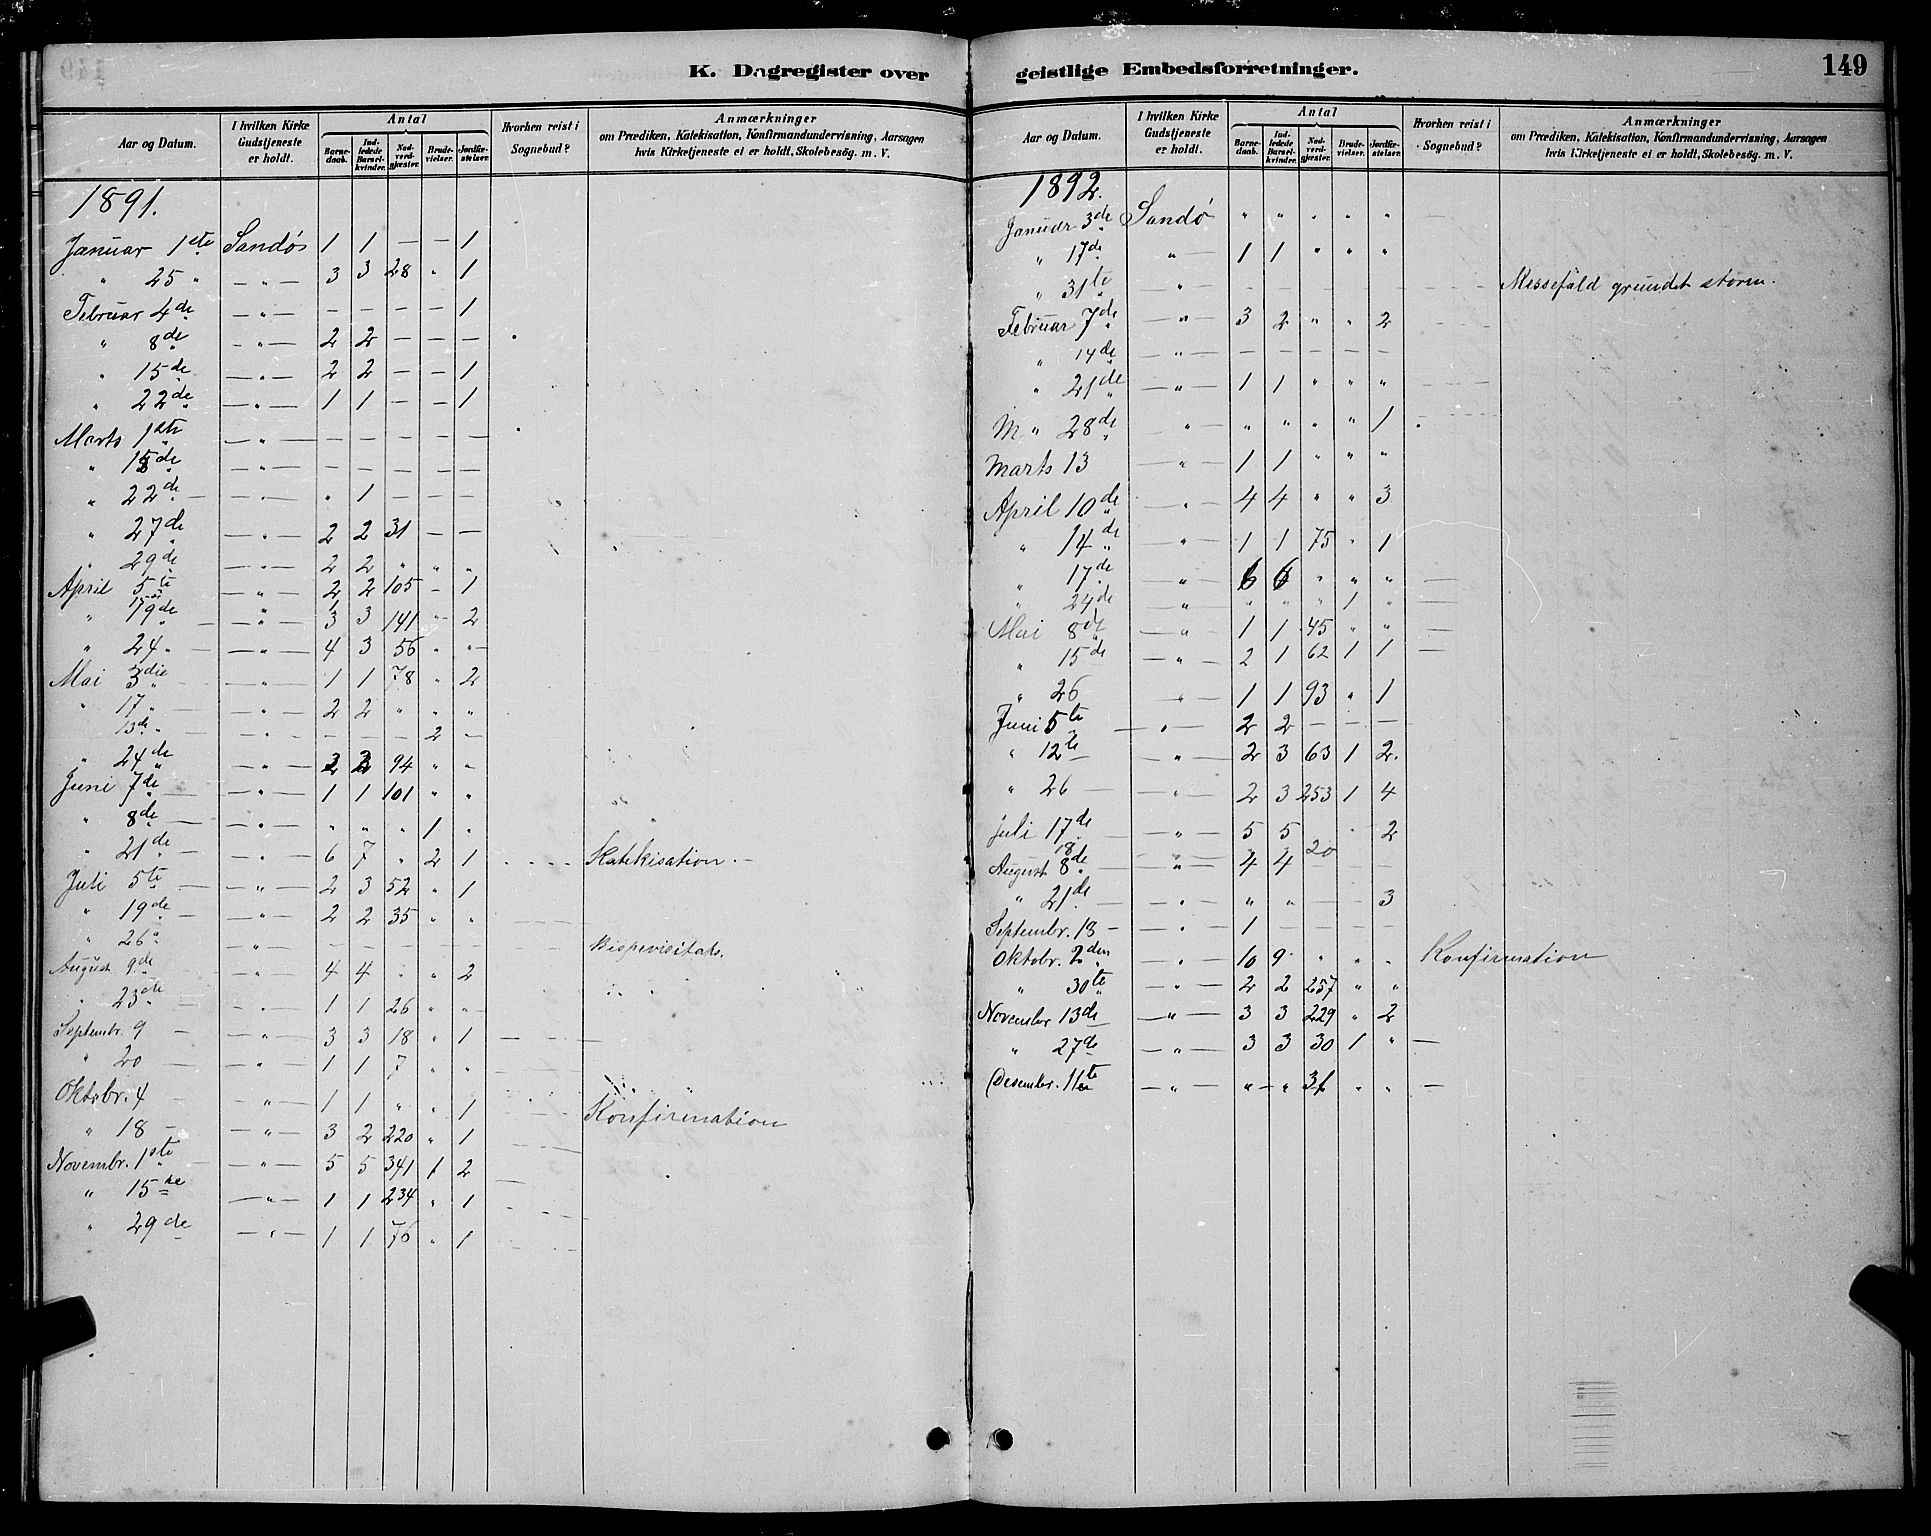 K. Dagregister over
geistlige Embedsforretninger.
149
Aar og Datum. I hvilken Kirke Gudstjeneste er holdt. Antal Barnedaab. Indledede Barselkvinder. Nadverdgjester. Brudevielser. Jordfæstelser. Hvorhen reist i Sognebud? Anmærkninger om Prædiken, Katekisation, Konfirmandundervisning, Aarsagen hvis Kirketjeneste ei er holdt, Skolebesøg. m. V.
1891.
Januar 1ste Sandøs 1 1 — — 1
" 25 " — " — 3 3 28 " 1
Februar 4de — " — — — — — 1
" 8de — " — 2 2 — — —
" 15de — " — 2 2 — — 1
" 22de — " — 1 1 — — 1
Marts 1ste — " — — — — — —
" 15de — " — — — — — —
" 22de — — " — " 1 — — —
" 27de — " — 2 2 31 — —
" 29de — " — 2 2 " " "
April 5te — " — 2 2 105 — 1
" 19de — — " — 3 3 141 " 2
" 24 " — — " — 4 3 56 " "
Mai 3die — " — 1 1 78 " 2
" 17 " — " — 2 2 " " "
13de " — — " — — — — 2 —
" 24de — " — 2 2 94 " "
Juni 7de — — " — 1 1 101 " "
" 8de — — " — " " " 1 "
" 21de — — " — 6 7 " 2 1 Katekisation. —
Juli 5te — — " — 2 3 52 " 1
" 19de — — " — 2 2 35 " "
" 26 " — " — — — — — — Bispevisitats.
August 9de — " — 4 4 " " 2
" 23de — — " — 1 1 26 " "
Septembr. 9 — — " — 3 3 18 " 1 — —
" 20 — — " — 1 1 7 " "
Oktobr. 4 — — " — 1 1 " " 1
" 18 — — " — 3 2 220 " 1 Konfirmation
Novembr. 1ste — — " — 5 5 341 1 2
" 15de — " — 1 1 234 " 1
" 29de — " — 1 1 76 " 1
Aar og Datum. I hvilken Kirke Gudstjeneste er holdt. Antal Barnedaab. Indledede Barselkvinder. Nadverdgjester. Brudevielser. Jordfæstelser. Hvorhen reist i Sognebud? Anmærkninger om Prædiken, Katekisation, Konfirmandundervisning, Aarsagen hvis Kirketjeneste ei er holdt, Skolebesøg. m. V.
1892.
Januar 3de Sandø " " " " "
" 17de " 1 1 " " "
" 31te — " — — — — — — Messefald grundet storm.
Februar 7de — " — 3 2 " " 2
" 14de — " — — — — — —
" 21de — " — 1 1 " " "
M " 28de — " — " " " " 1
Marts 13 — " — 1 1 " " "
April 10de " — 4 4 " " 3
" 14de — " — 1 1 75 " 1
" 17de — " — 6 6 " " " —
" 24de — " — " " " 1 " —
Mai 8de — " — 1 1 45 " " —
" 15de — " — 2 1 62 1 1 —
" 26 " — 1 1 93 " 1
Juni 5te — " — 2 2 — — —
" 12te — " — 2 3 63 1 2.
" 26 — — " — 2 3 253 1 4
Juli 17de — — " — 5 5 " 2
August 8de — " — 4 4 20 — —
" 21de — — " — " " — — 3
Septembr. 18 — — " — 1 — — — —
Oktobr. 2den — " — 10 9 " " " Konfirmation
" 30te — " — 2 2 257 " "
November 13de — " — 3 3 229 " 2
" 27de — " — 3 3 30 1 " —
Desembr. 11te — " — " — " 31 " " —